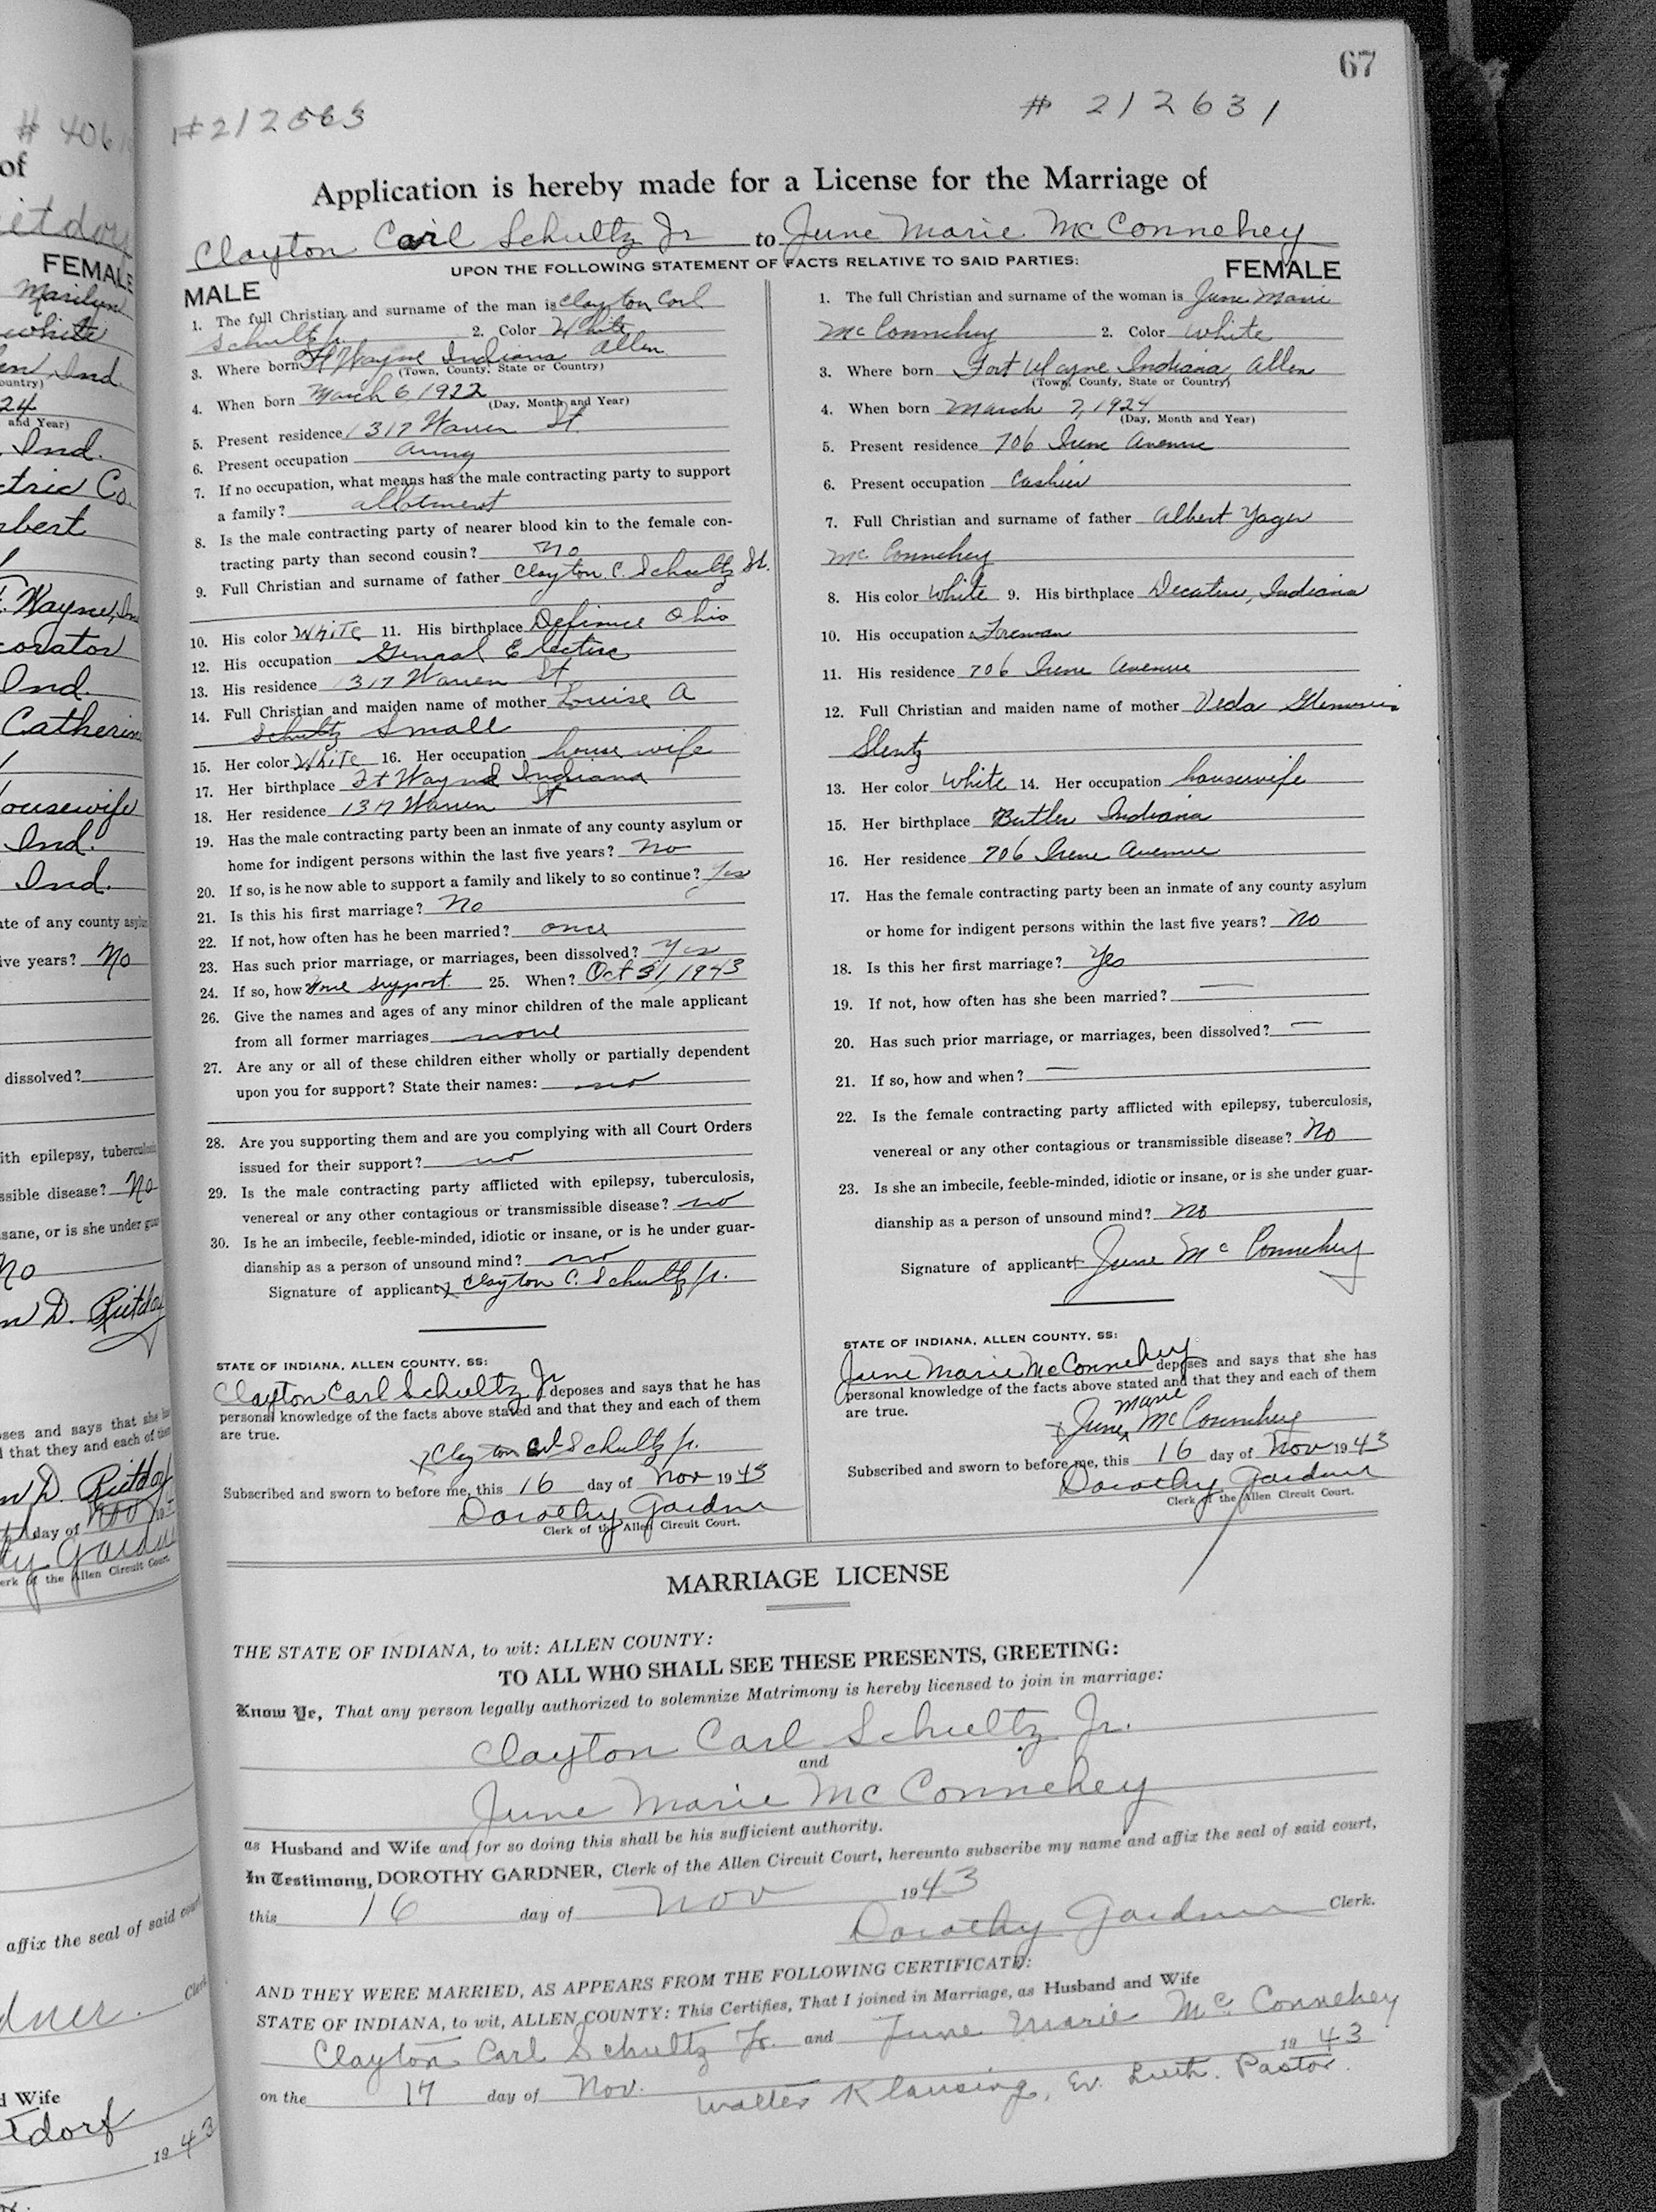 67
# 406
#212563
# 212631
of
Application is hereby made for a License for the Marriage of
Clayton Carl Schultz Jr to June Marie McConnehey
UPON THE FOLLOWING STATEMENT OF FACTS RELATIVE TO SAID PARTIES:
MALE
1. The full Christian and surname of the man is Clayton Carl
Schultz Jr 2. Color White
3. Where born Ft Wayne Indiana Allen
(Town, County, State or Country)
4. When born March 6, 1922
(Day, Month and Year)
5. Present residence 1317 Warren St.
6. Present occupation Army
7. If no occupation, what means has the male contracting party to support
a family? allotment
8. Is the male contracting party of nearer blood kin to the female con-
tracting party than second cousin? no
9. Full Christian and surname of father Clayton C. Schultz Sr.
10. His color White 11. His birthplace Defiance Ohio
12. His occupation General Electric
13. His residence 1317 Warren St
14. Full Christian and maiden name of mother Louise A
Schultz Small
15. Her color White 16. Her occupation house wife
17. Her birthplace Ft Wayne Indiana
18. Her residence 1317 Warren St
19. Has the male contracting party been an inmate of any county asylum or
home for indigent persons within the last five years? No
20. If so, is he now able to support a family and likely to so continue? Yes
21. Is this his first marriage? No
22. If not, how often has he been married? once
23. Has such prior marriage, or marriages, been dissolved? Yes
24. If so, how none support 25. When? Oct 31, 1943
26. Give the names and ages of any minor children of the male applicant
from all former marriages none
27. Are any or all of these children either wholly or partially dependent
upon you for support? State their names: no
28. Are you supporting them and are you complying with all Court Orders
issued for their support? no
29. Is the male contracting party afflicted with epilepsy, tuberculosis,
venereal or any other contagious or transmissible disease? no
30. Is he an imbecile, feeble-minded, idiotic or insane, or is he under guar-
dianship as a person of unsound mind? no
Signature of applicant x Clayton C. Schultz Jr.
STATE OF INDIANA, ALLEN COUNTY, SS:
Clayton Carl Schultz Jr deposes and says that he has
personal knowledge of the facts above stated and that they and each of them
are true.
x Clayton Schultz Jr.
Subscribed and sworn to before me, this 16 day of Nov 1943
Dorothy Gardner
Clerk of the Allen Circuit Court.
FEMALE
1. The full Christian and surname of the woman is June Marie
McConnehey 2. Color White
3. Where born Fort Wayne Indiana, Allen
(Town, County, State or Country)
4. When born March 7, 1924
(Day, Month and Year)
5. Present residence 706 Irene Avenue
6. Present occupation Cashier
7. Full Christian and surname of father Albert Yager
McConnehey
8. His color White 9. His birthplace Decatur, Indiana
10. His occupation Foreman
11. His residence 706 Irene Avenue
12. Full Christian and maiden name of mother Veda
Slentz
13. Her color White 14. Her occupation housewife
15. Her birthplace Butler Indiana
16. Her residence 706 Irene Avenue
17. Has the female contracting party been an inmate of any county asylum
or home for indigent persons within the last five years? No
18. Is this her first marriage? Yes
19. If not, how often has she been married? —
20. Has such prior marriage, or marriages, been dissolved? —
21. If so, how and when? —
22. Is the female contracting party afflicted with epilepsy, tuberculosis,
venereal or any other contagious or transmissible disease? No
23. Is she an imbecile, feeble-minded, idiotic or insane, or is she under guar-
dianship as a person of unsound mind? No
Signature of applicant x June McConnehey
STATE OF INDIANA, ALLEN COUNTY, SS:
June Marie McConnehey deposes and says that she has
personal knowledge of the facts above stated and that they and each of them
are true.
x June Marie McConnehey
Subscribed and sworn to before me, this 16 day of Nov 1943
Dorothy Gardner
Clerk of the Allen Circuit Court.
MARRIAGE LICENSE
THE STATE OF INDIANA, to wit: ALLEN COUNTY:
TO ALL WHO SHALL SEE THESE PRESENTS, GREETING:
Know Ye, That any person legally authorized to solemnize Matrimony is hereby licensed to join in marriage:
Clayton Carl Schultz Jr.
and
June Marie McConnehey
as Husband and Wife and for so doing this shall be his sufficient authority.
In Testimony, DOROTHY GARDNER, Clerk of the Allen Circuit Court, hereunto subscribe my name and affix the seal of said court,
this 16 day of Nov 1943
Dorothy Gardner Clerk.
AND THEY WERE MARRIED, AS APPEARS FROM THE FOLLOWING CERTIFICATE:
STATE OF INDIANA, to wit, ALLEN COUNTY: This Certifies, That I joined in Marriage, as Husband and Wife
Clayton Carl Schultz Jr. and June Marie McConnehey
on the 17 day of Nov. 1943
Walter Klausing, Ev. Luth. Pastor.